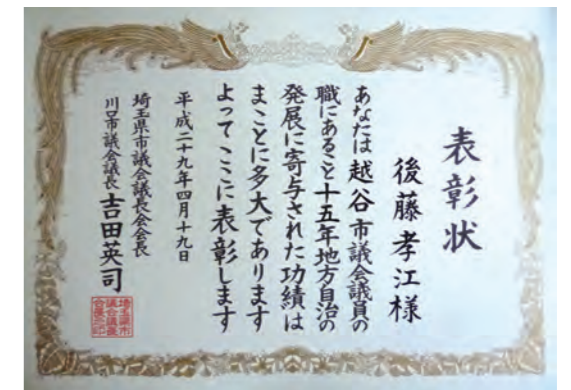 表彰状
後藤孝江様
あなたは越谷市議会議員の
職にあること十五年地方自治の
発展に寄与された功績は
まことに多大であります
よってここに表彰します
平成二十九年四月十九日
埼玉県市議会議長会会長
川口市議会議長 吉田英司
埼玉県市
議会議長
会長之印